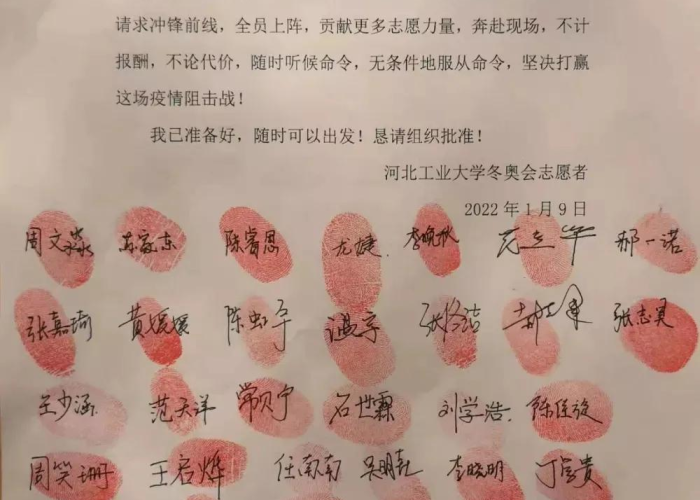 请求冲锋前线，全员上阵，贡献更多志愿力量，奔赴现场，不计
报酬，不论代价，随时听候命令，无条件地服从命令，坚决打赢
这场疫情阻击战！
我已准备好，随时可以出发！恳请组织批准！
河北工业大学冬奥会志愿者
2022 年 1 月 9 日
周文淼 陈睿恩 尤婕 李晚秋 郝一诺
张嘉瑜 黄媛媛 温宇
王少涵 范天洋 常贝宁 石世霖 刘学浩
周笑珊 王启烨 任南南 李晓明 丁学贵